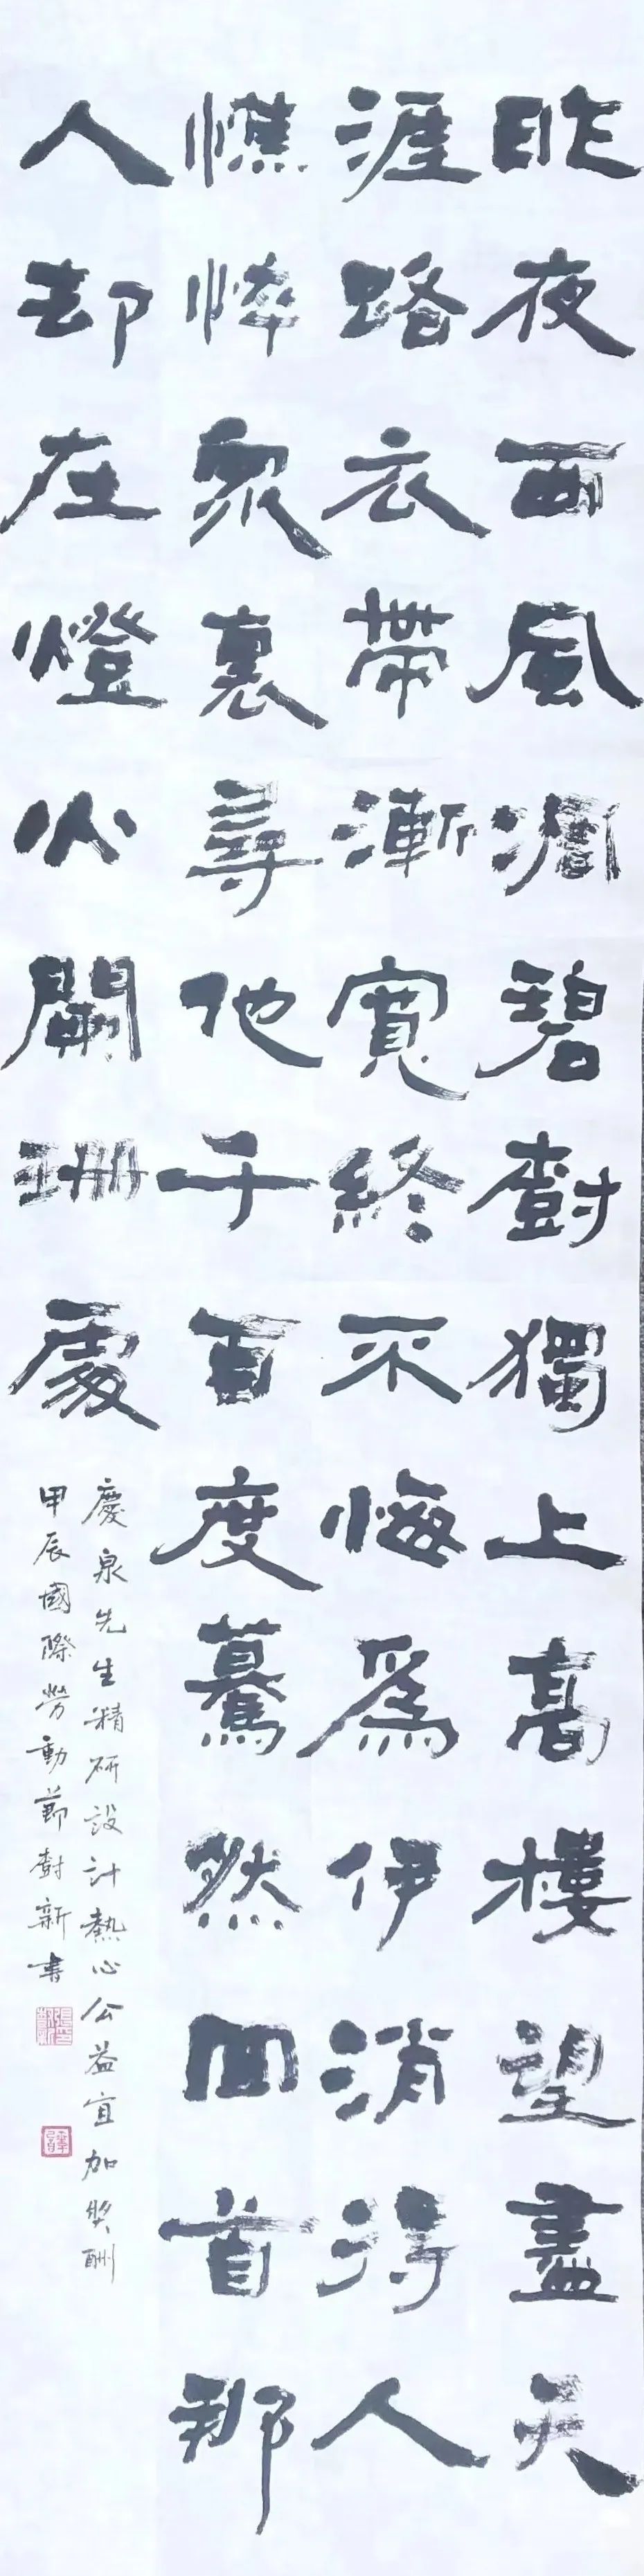 昨夜西風凋碧樹獨上高樓望盡天
涯路衣帶漸寬終不悔爲伊消得人
憔悴眾裏尋他千百度驀然回首那
人却在燈火闌珊處
慶泉先生精研設計熱心公益宜加獎酬
甲辰國際勞動節樹新書